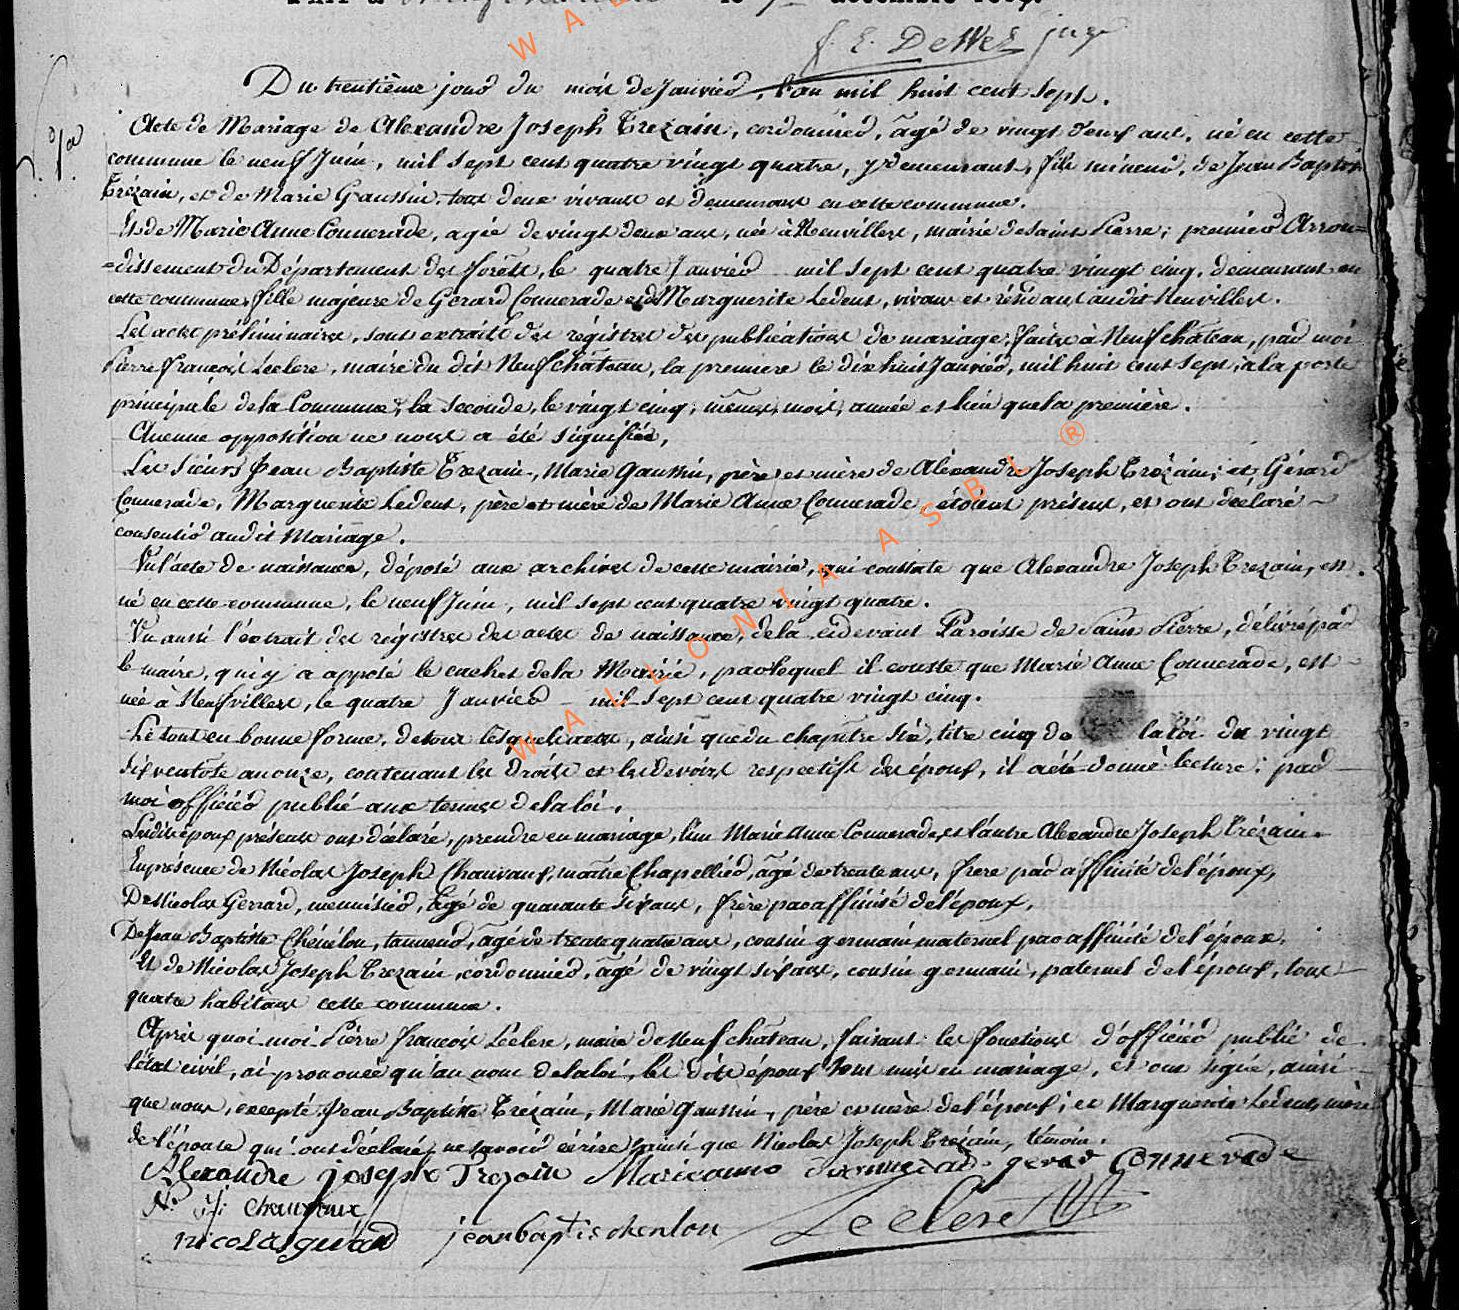 f. E. DeWez juge
Du trentième jour du mois de Janvier, l'an mil huit cent sept.
Acte de Mariage de Alexandre Joseph Trezain, cordonnier, âgé de vingt deux ans, né en cette
commune le neuf Juin, mil sept cent quatre vingt quatre, y demeurant, fils mineur, de Jean Baptiste
Trézain, et de Marie Gaussin, tous deux vivants et demeurans en cette commune.
Et de Marie Anne Connerade, agée de vingt deux ans, née à Neuvillers, mairie de Saint Pierre, premier Arron=
=dissement du Département des forêts, le quatre Janvier mil sept cent quatre vingt cinq, demeurant en
cette commune, fille majeure de Gerard Connerade et de Marguerite Ledent, vivans et résidans audit Neuvillers.
Les actes préliminaires, sont extraits des régistres des publications de mariage, faites à Neufchâteau, par moi
Pierre françois Leclere, maire du dit Neufchâteau, la premiere le dix huit Janvier, mil huit cent sept, à la porte
principale de la Commune, la seconde, le vingt cinq, mêmes mois, année et lieu que la première.
Aucune opposition ne nous a été signifiée,
Les Sieurs Jean Baptiste Trezain, Marie Gaussin, père et mère de Alexandre Joseph Trézain, et Gérard
Connerade, Marguerite Ledent, père et mère de Marie Anne Connerade, étoient présens, et ont declaré
consentir audit Mariage.
Vu l'acte de naissance, déposé aux archives de cette mairie, qui constate que Alexandre Joseph Trezain, est
né en cette commune, le neuf Juin, mil sept cent quatre vingt quatre.
Vu aussi l'extrait des régistres des actes de naissance, de la cidevant Paroisse de Saint Pierre, délivré par
le maire, qui y a apposé le cachet de la Mairie, par lequel il conste que Marie Anne Connerade, est
née à Neufvillers, le quatre Janvier mil sept cent quatre vingt cinq.
Le tout en bonne forme, de tous lesquels actes, ainsi que du chapitre six, titre cinq de la loi du vingt
six ventose an onze, contenant les droits et les devoirs respectifs des époux, il a été donné lecture, par
moi officier publié aux termes de la loi.
Lesdits époux présens ont déclaré, prendre en mariage, l'un Marie Anne Connerade, et l'autre Alexandre Joseph Trézain.
En présence de Nicolas Joseph Chauvaux, maître Chapellier, âgé de trente ans, frere par affinité de l'époux,
De Nicolas Gerrard, menuisier, âgé de quarante six ans, frère par affinité de l'époux,
De Jean Baptiste Chénélon, tanneur, âgé de trente quatre ans, cousin germain maternel par affinité de l'époux,
Et de Nicolas Joseph Trezain, cordonnier, âgé de vingt six ans, cousin germain, paternel de l'époux, tous
quatre habitans cette commune.
Après quoi moi Pierre françois Leclere, maire de Neufchâteau, faisant les fonctions d'officier publié de
l'état civil, ai prononcé qu'au nom de la loi, les dits époux sont unis en mariage, et ont signé, ainsi
que nous, excepté Jean Baptiste Trézain, Marie Gaussin, père et mère de l'époux; et Marguerite Ledent, mère
de l'épouse qui ont déclaré, ne savoir écrire, ainsi que Nicolas Joseph Trezain, témoin.
Alexandre joseph Trezain Marie anne gerar Connerade
N. J. Chauvaux
nicolas gérard jean baptiste chenlon Leclere
WALLONIA ASBL ®